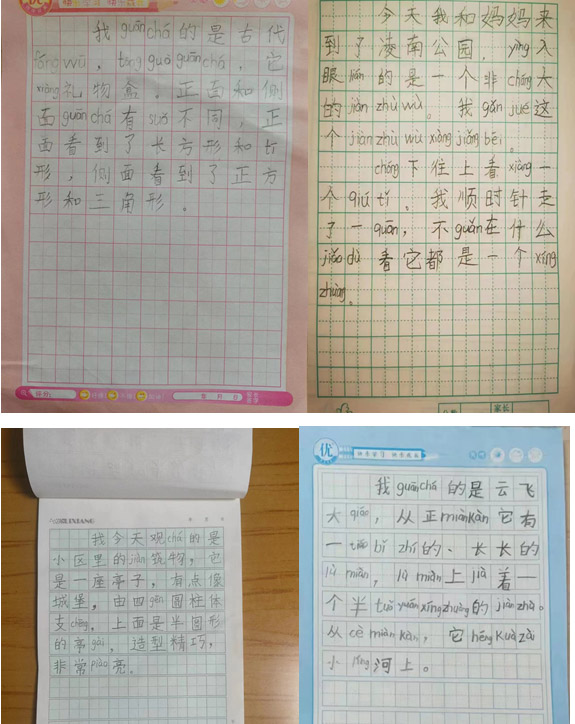 我guānchá的是古代
fángwū，tōngguò guānchá，它
xiàng礼物盒。正面和侧
面guānchá有suǒ不同，正
面看到了长方形和长
形，侧面看到了正方
形和三角形。
今天我和妈妈来
到了凌南公园，yìng入
眼lián的是一个非cháng大
的jiàn zhù wù。我gǎn jué这
个jiàn zhù wù xiàng jiǎng bēi。
cóng下往上看xiàng一
个qiú tǐ。我顺时针走
了一quān，不guǎn在什么
jiǎo dù看它都是一个xíng
zhuàng。
我今天观chá的是
小区里的jiàn筑物，它
是一座亭子，有点像
城堡，由四gēn圆柱体
支chēng，上面是半圆形
的亭gài，造型精巧，
非常piào亮。
优
我guānchá的是云飞
大qiáo，从正miànkàn它有
一tiáo bǐ zhí的、长长的
lù miàn，lù miàn上jià着一
个半tuǒ yuán xíng zhuàng的jiàn zhù。
从cè miàn kàn，它héng kuà zài
小líng河上。